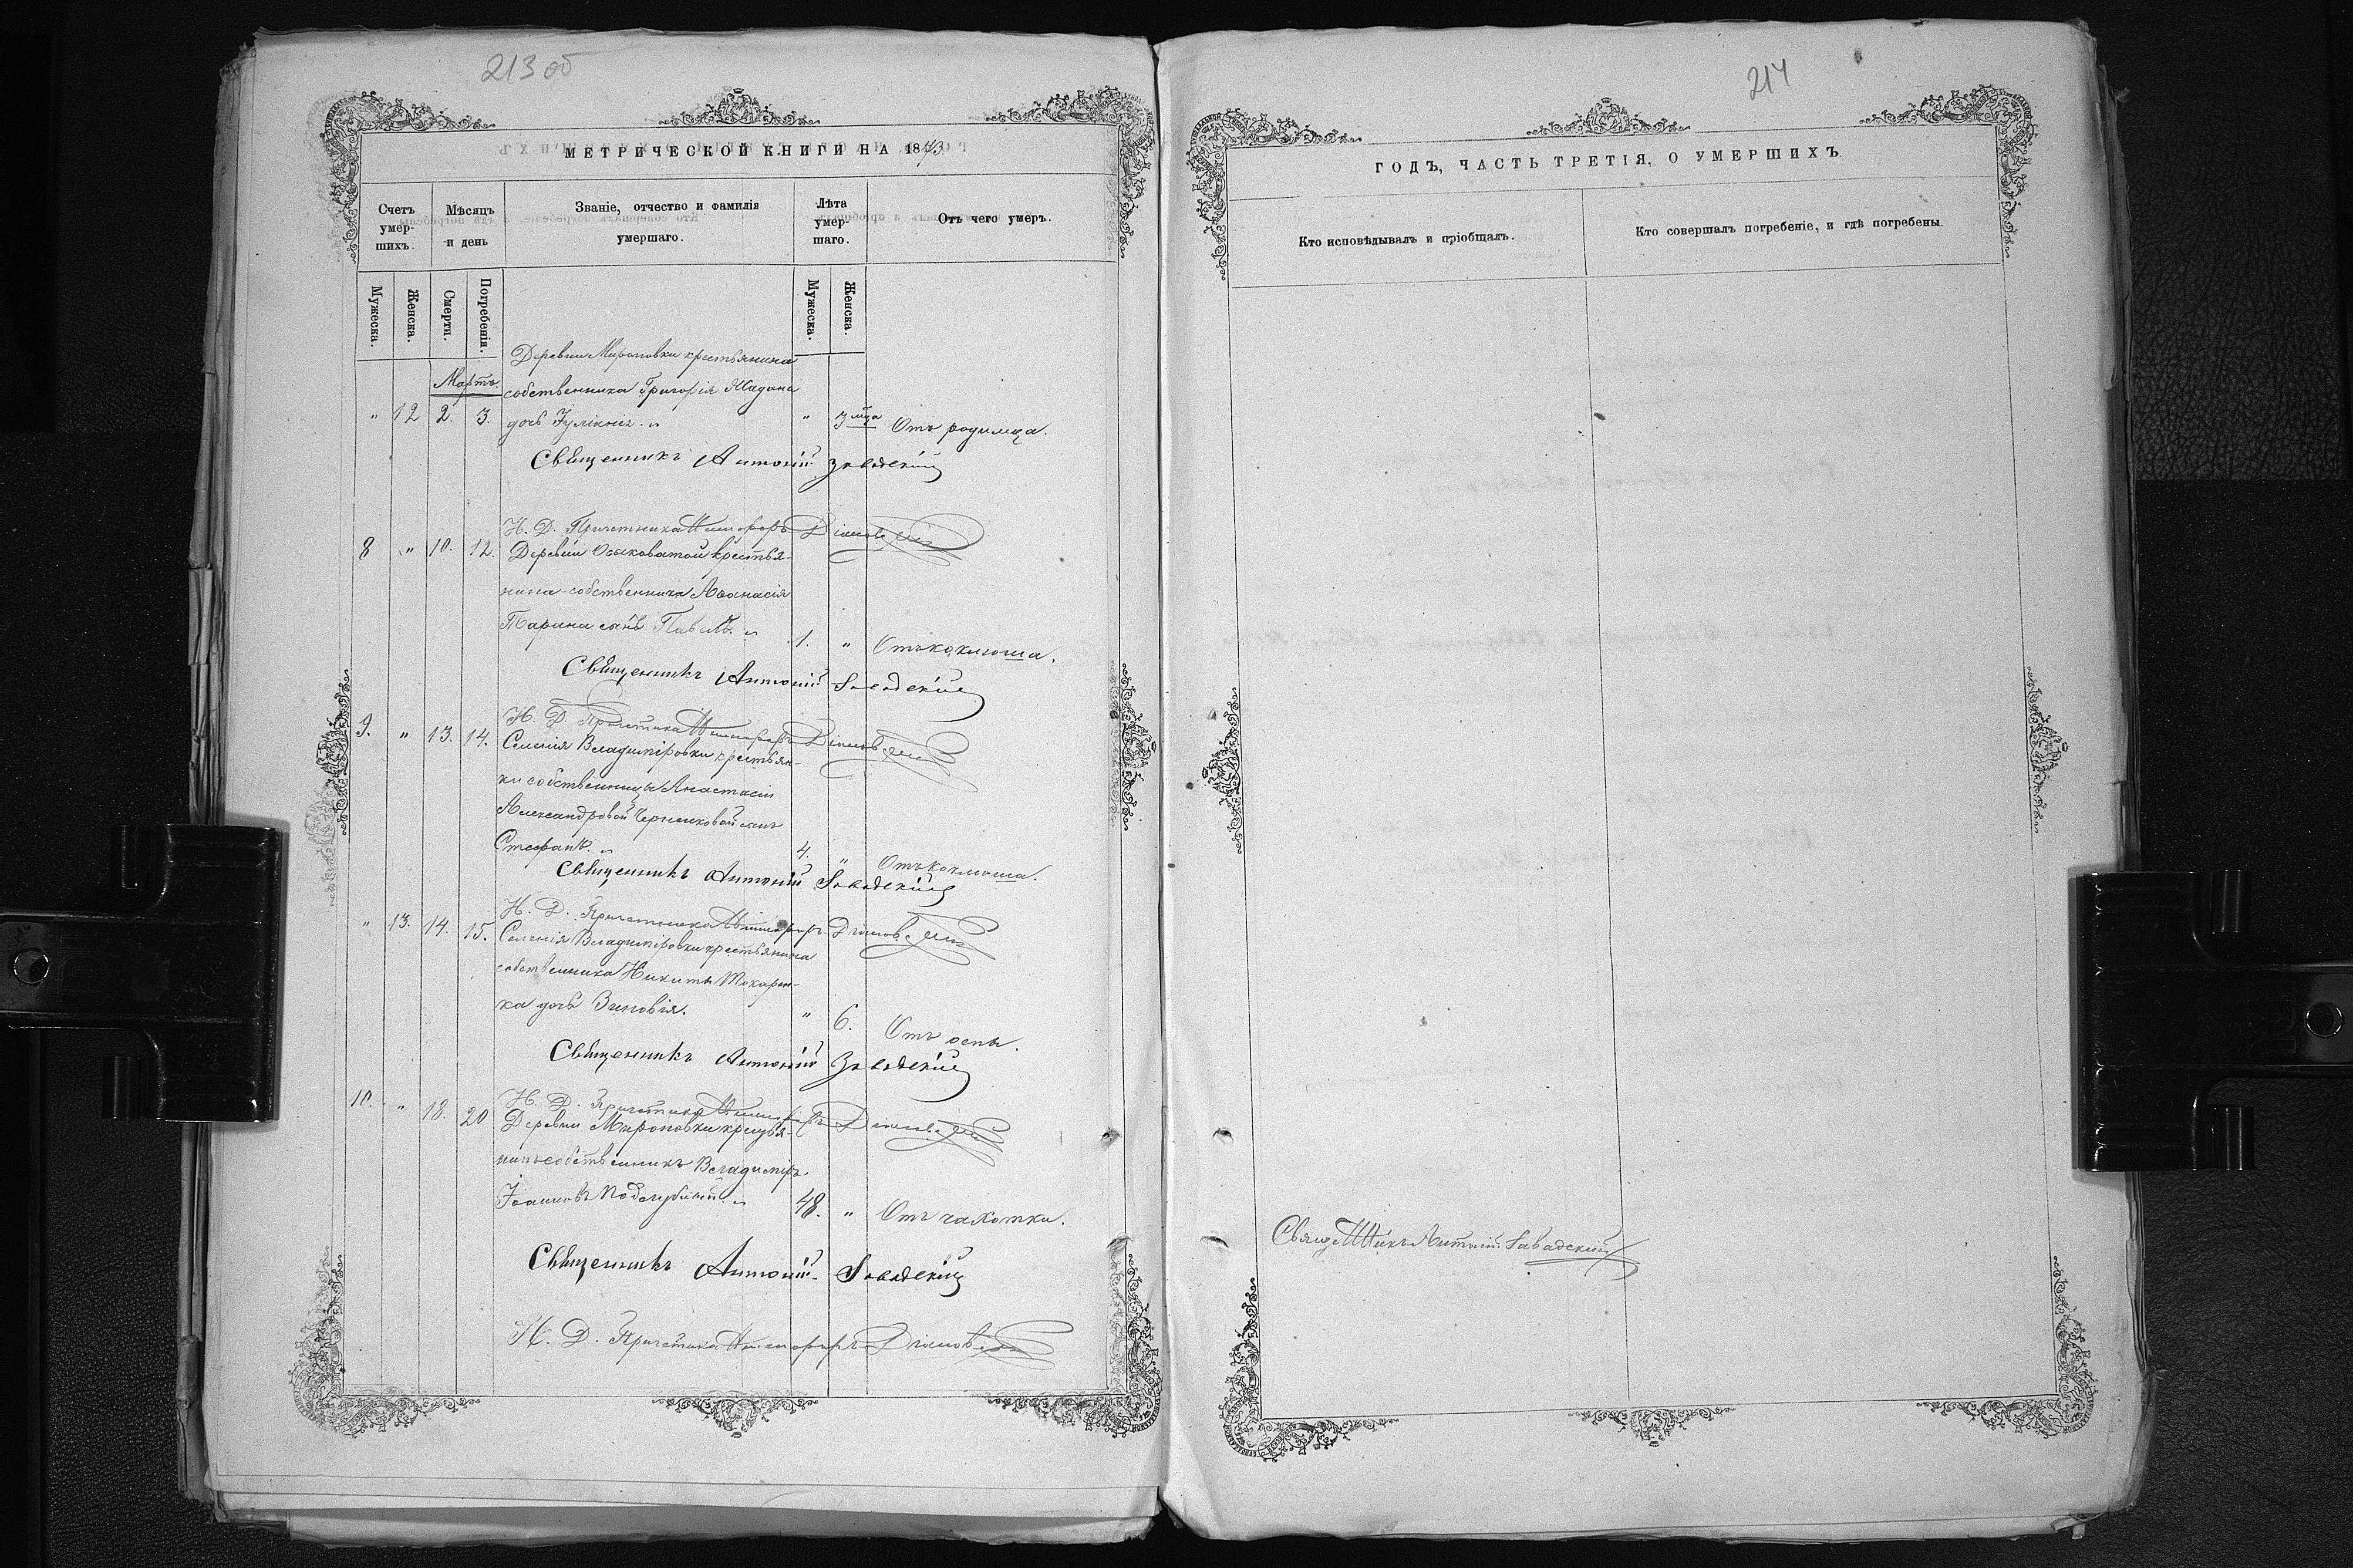 213 об
МЕТРИЧЕСКОЙ КНИГИ НА 1873
Счетъ умер-шихъ.
Мѣсяцъ и день
Званіе, отчество и фамилія умершаго.
Лѣта умер-шаго.
Отъ чего умеръ.
Мужеска.
Женска.
Смерти.
Погребенія.
Мужеска.
Женска.
Мартъ.
Деревни Мироновки крестьянина
собственника Григорія Жадана
" 12 2. 3. дочь Іуліанія. " 3 мца Отъ родимца.
Священникъ Антоній Завадскій
И. Д. Причетника Никифоръ
8 " 10. 12. Деревни Осиковатой крестья-
нина-собственника Аѳанасія
Тарана сынъ Павелъ. 1. " Отъ коклюша.
Священникъ Антоній Завадскій
И. Д. Причетника Никифоръ
9. " 13. 14. Селенія Владиміровки крестьян-
ки собственницы Анастасіи
Александровой сынъ
Стефанъ. 4. " Отъ коклюша.
Священникъ Антоній Завадскій
И. Д. Причетника Никифоръ
" 13. 14. 15. Селенія Владиміровки крестьянина
собственника Никиты Токарен-
ка дочь Зиновія. " 6. Отъ оспы.
Священникъ Антоній Завадскій
И. Д. Причетника Никифоръ
10. " 18. 20 Деревни Мироновки крестья-
нинъ собственникъ Владиміръ
Іоанновъ 48. " Отъ чахотки.
Священникъ Антоній Завадскій
И. Д. Причетника Никифоръ
214
ГОДЪ, ЧАСТЬ ТРЕТІЯ, О УМЕРШИХЪ
Кто исповѣдывалъ и пріобщалъ.
Кто совершалъ погребеніе, и гдѣ погребены.
Священникъ Антоній Завадскій